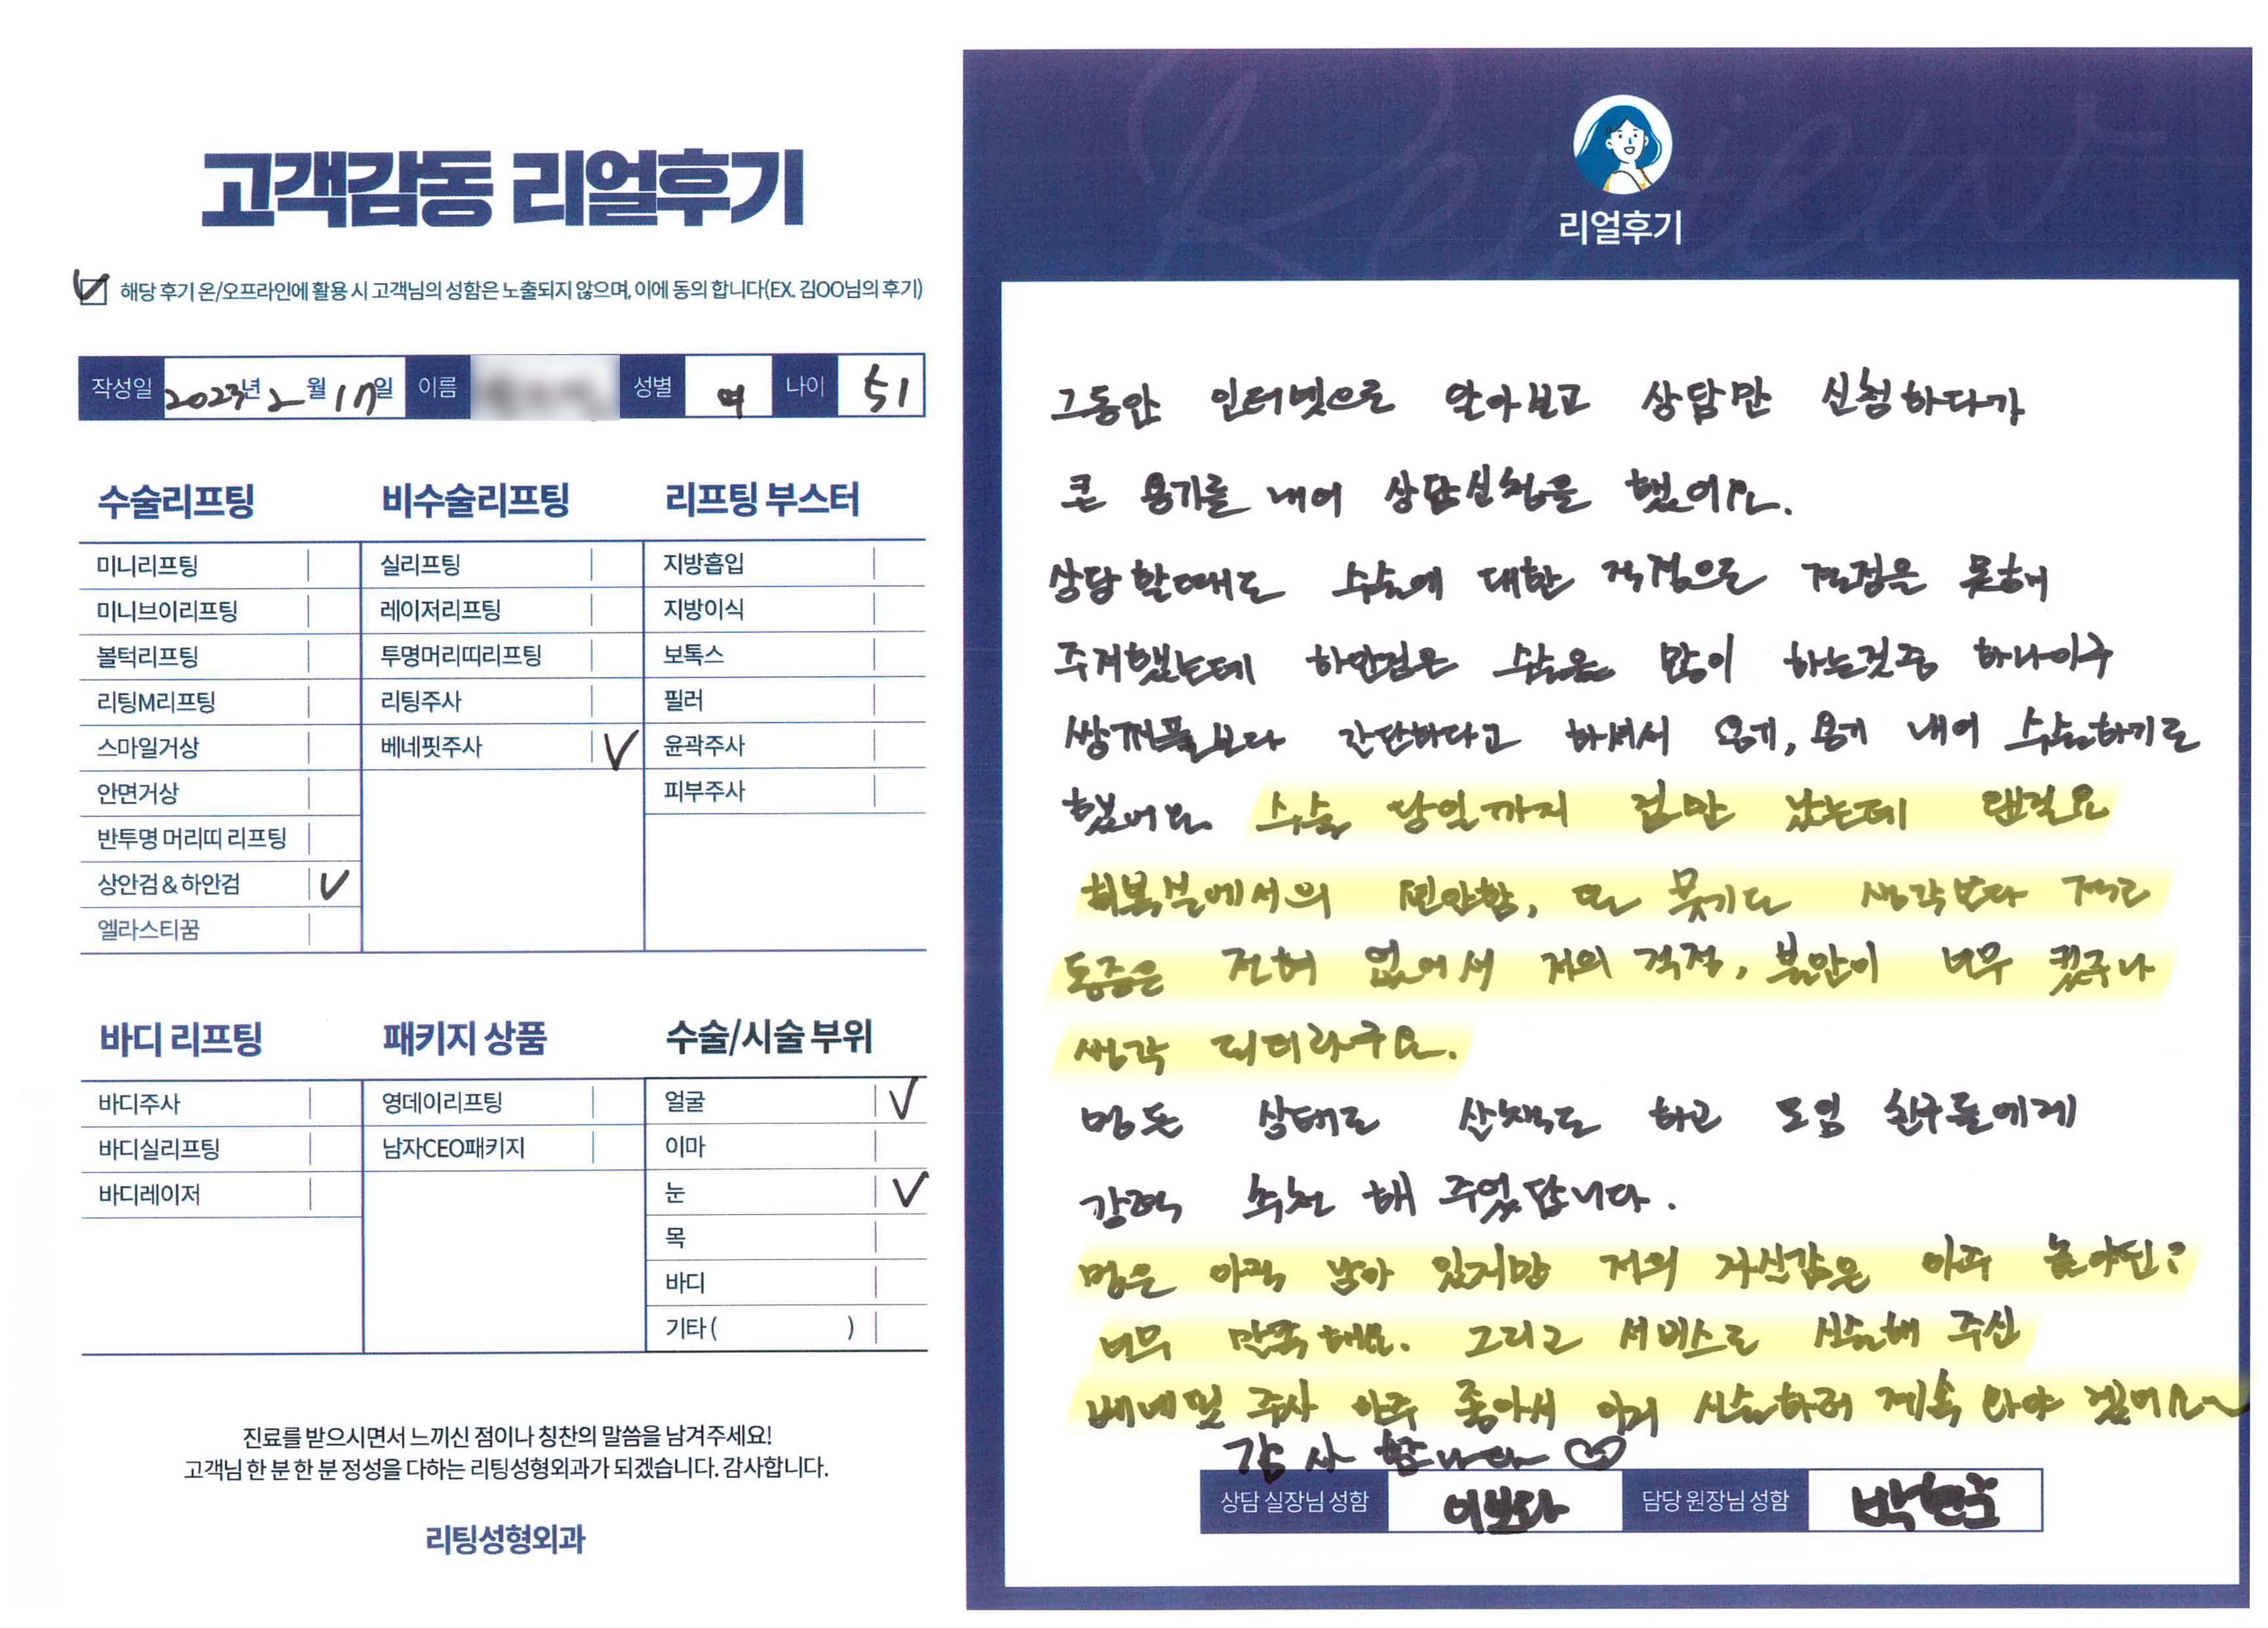 고객감동 리얼후기
해당 후기 온/오프라인에 활용 시 고객님의 성함은 노출되지 않으며, 이에 동의 합니다(EX. 김OO님의 후기)
작성일 2023년 2월 17일 이름 성별 여 나이 51
수술리프팅
미니리프팅
미니브이리프팅
볼턱리프팅
리팅M리프팅
스마일거상
안면거상
반투명 머리띠 리프팅
상안검 & 하안검 V
엘라스티꿈
비수술리프팅
실리프팅
레이저리프팅
투명머리띠리프팅
리팅주사
베네핏주사 V
리프팅 부스터
지방흡입
지방이식
보톡스
필러
윤곽주사
피부주사
바디 리프팅
바디주사
바디실리프팅
바디레이저
패키지 상품
영데이리프팅
남자CEO패키지
수술/시술 부위
얼굴 V
이마
눈 V
목
바디
기타 ( )
진료를 받으시면서 느끼신 점이나 칭찬의 말씀을 남겨주세요!
고객님 한 분 한 분 정성을 다하는 리팅성형외과가 되겠습니다. 감사합니다.
리팅성형외과
Review
리얼후기
그동안 인터넷으로 알아보고 상담만 신청하다가
큰 용기를 내어 상담신청을 했어요.
상담할때도 수술에 대한 걱정으로 결정을 못해
주저했는데 하안검은 수술중 많이 하는것중 하나이구
쌍꺼풀보다 간단하다고 하셔서 용기, 용기 내어 수술하기로
했어요 수술 당일까지 겁만 났는데 웬걸요
회복실에서의 편안함, 또 붓기도 생각보다 적고
통증은 전혀 없어서 저의 걱정, 불안이 너무 컸구나
생각 되더라구요.
멍든 상태로 산책도 하고 모임 친구들에게
강력 추천 해 주었답니다.
멍은 아직 남아 있지만 저의 자신감은 아주
너무 만족해요. 그리고 서비스로 시술해 주신
베네핏 주사 아주 좋아서 이거 시술하러 계속 와야 겠어요~
감사합니다 ♡
상담 실장님 성함 이보라 담당 원장님 성함 박현준